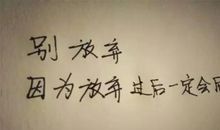 别放弃
因为放弃过后一定会